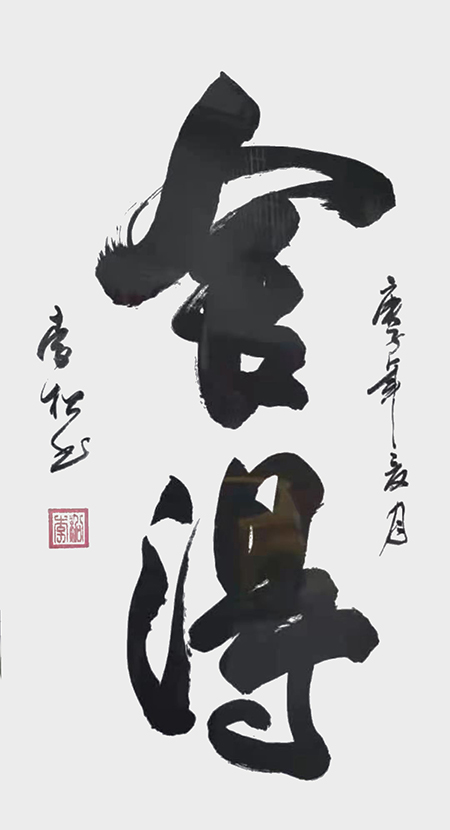 庚子年夏月
舍得
李松书